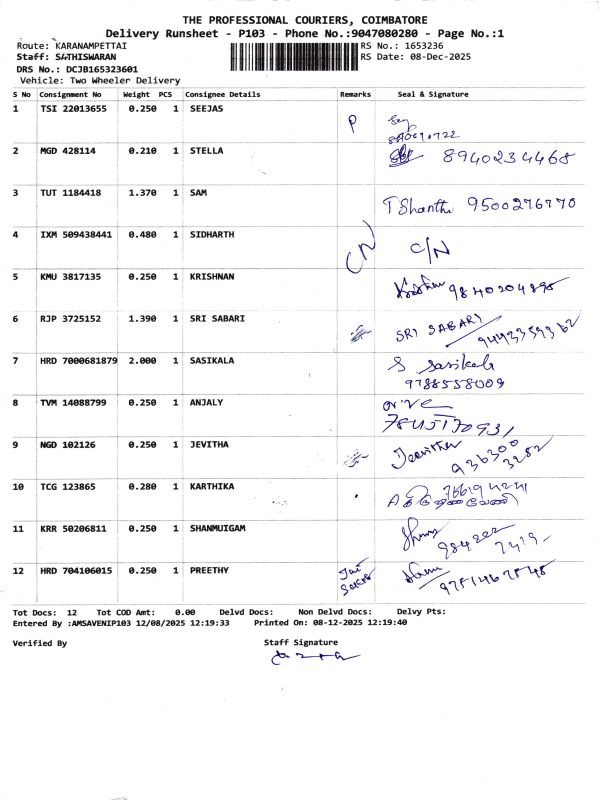 THE PROFESSIONAL COURIERS, COIMBATORE
Delivery Runsheet - P103 - Phone No.:9047080280 - Page No.:1
Route: KARANAMPETTAI RS No.: 1653236
Staff: SATHISWARAN RS Date: 08-Dec-2025
DRS No.: DCJB165323601
Vehicle: Two Wheeler Delivery
S No Consignment No Weight PCS Consignee Details Remarks Seal & Signature
1 TSI 22013655 0.250 1 SEEJAS P
2 MGD 428114 0.210 1 STELLA 8940234468
3 TUT 1184418 1.370 1 SAM T Shanthi 9500276770
4 IXM 509438441 0.480 1 SIDHARTH C/N C/N
5 KMU 3817135 0.250 1 KRISHNAN 9840204895
6 RJP 3725152 1.390 1 SRI SABARI SRI SABARI
7 HRD 7000681879 2.000 1 SASIKALA S Sasikala
9788558009
8 TVM 14088799 0.250 1 ANJALY
9 NGD 102126 0.250 1 JEVITHA Jeevitha
936300
3252
10 TCG 123865 0.280 1 KARTHIKA
11 KRR 50206811 0.250 1 SHANMUIGAM
984222
7419
12 HRD 704106015 0.250 1 PREETHY
Tot Docs: 12 Tot COD Amt: 0.00 Delvd Docs: Non Delvd Docs: Delvy Pts:
Entered By :AMSAVENIP103 12/08/2025 12:19:33 Printed On: 08-12-2025 12:19:40
Verified By Staff Signature